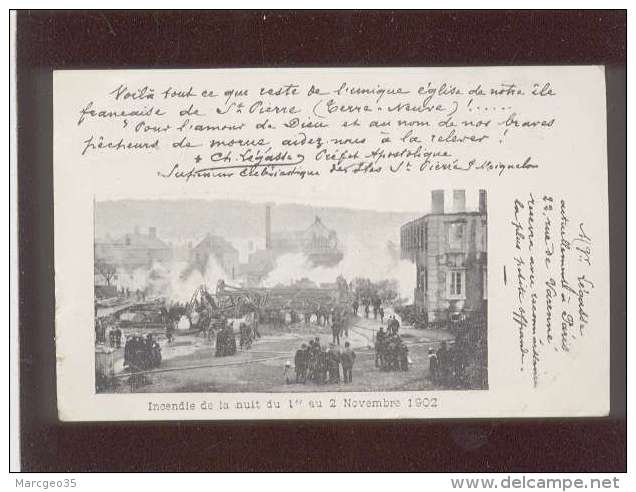 Voilà tout ce que reste de l'unique église de notre île
française de St Pierre (Terre-Neuve)!.....
Pour l'amour de Dieu et au nom de nos braves
pêcheurs de morue, aidez nous à la relever!
+ Ch. Légasse, Préfet Apostolique
Supérieur Ecclésiastique des Iles St Pierre & Miquelon
Mgr Légasse
actuellement à Paris
22, rue de Varenne,
recevra avec reconnaissance
la plus petite offrande.
Incendie de la nuit du 1er au 2 Novembre 1902
© Marcgeo35
http://www.delcampe.net